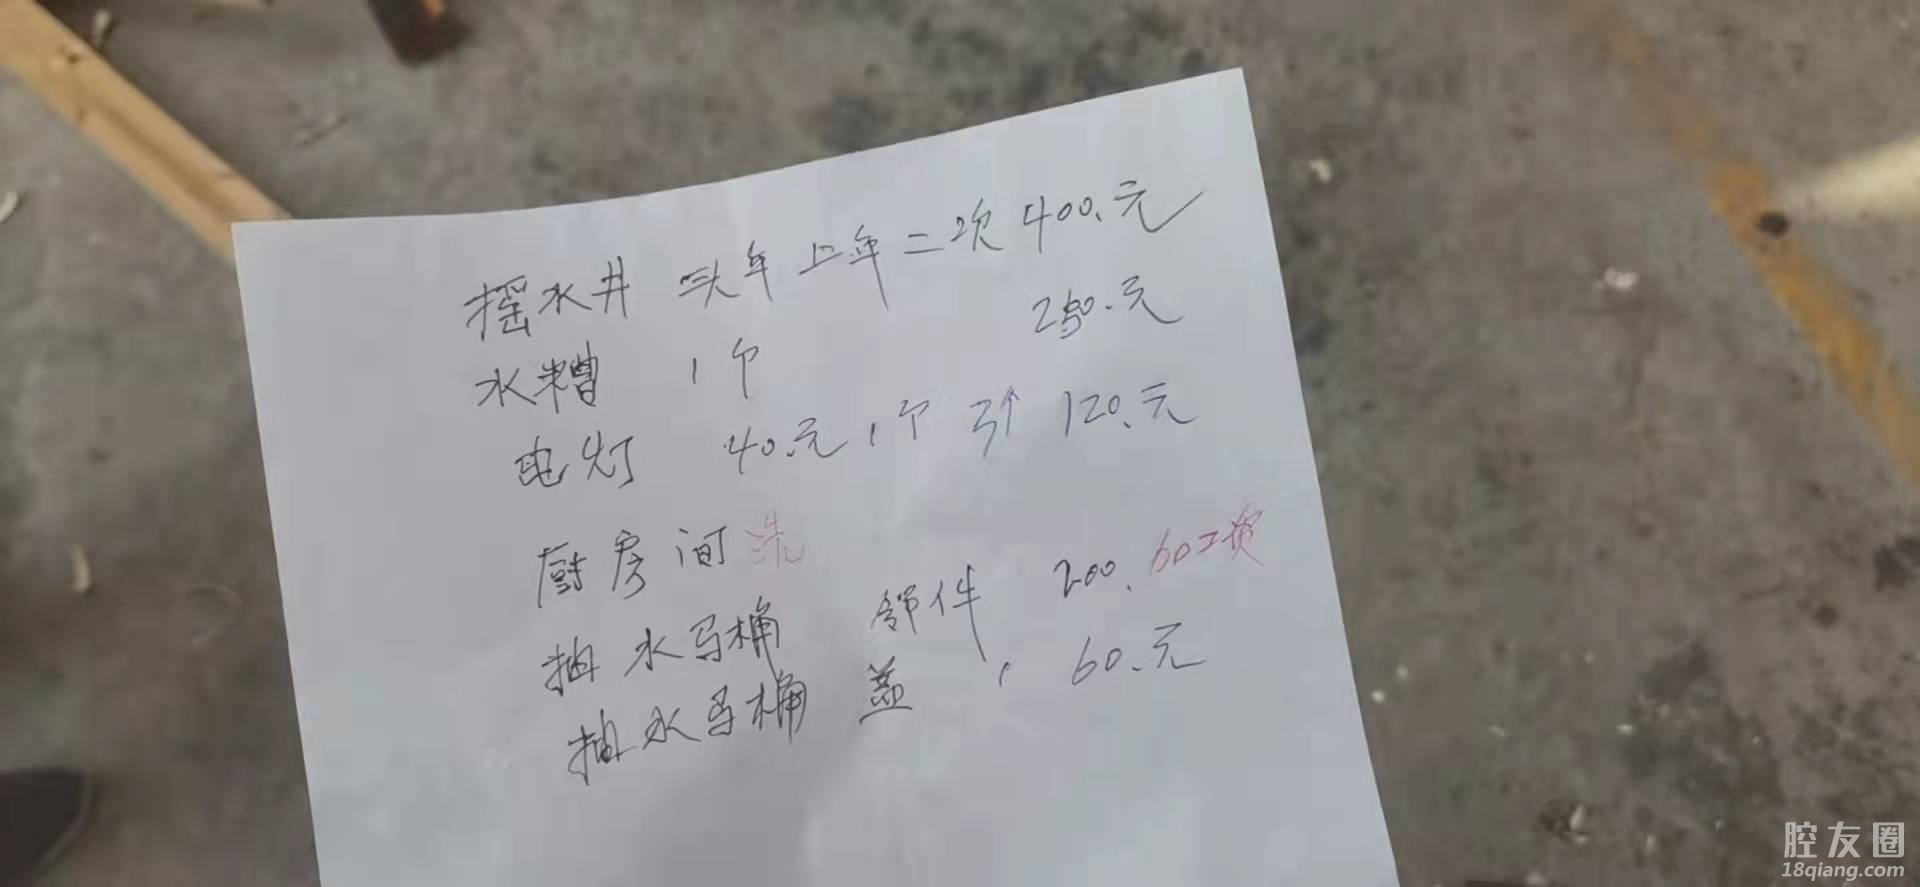 摇水井 头年上年二次400.元
水糟 1个 250.元
电灯 40.元1个 3个 120.元
厨房间洗
抽水马桶 部件 200. 60工资
抽水马桶 盖 1 60.元
腔友圈
18qiang.com